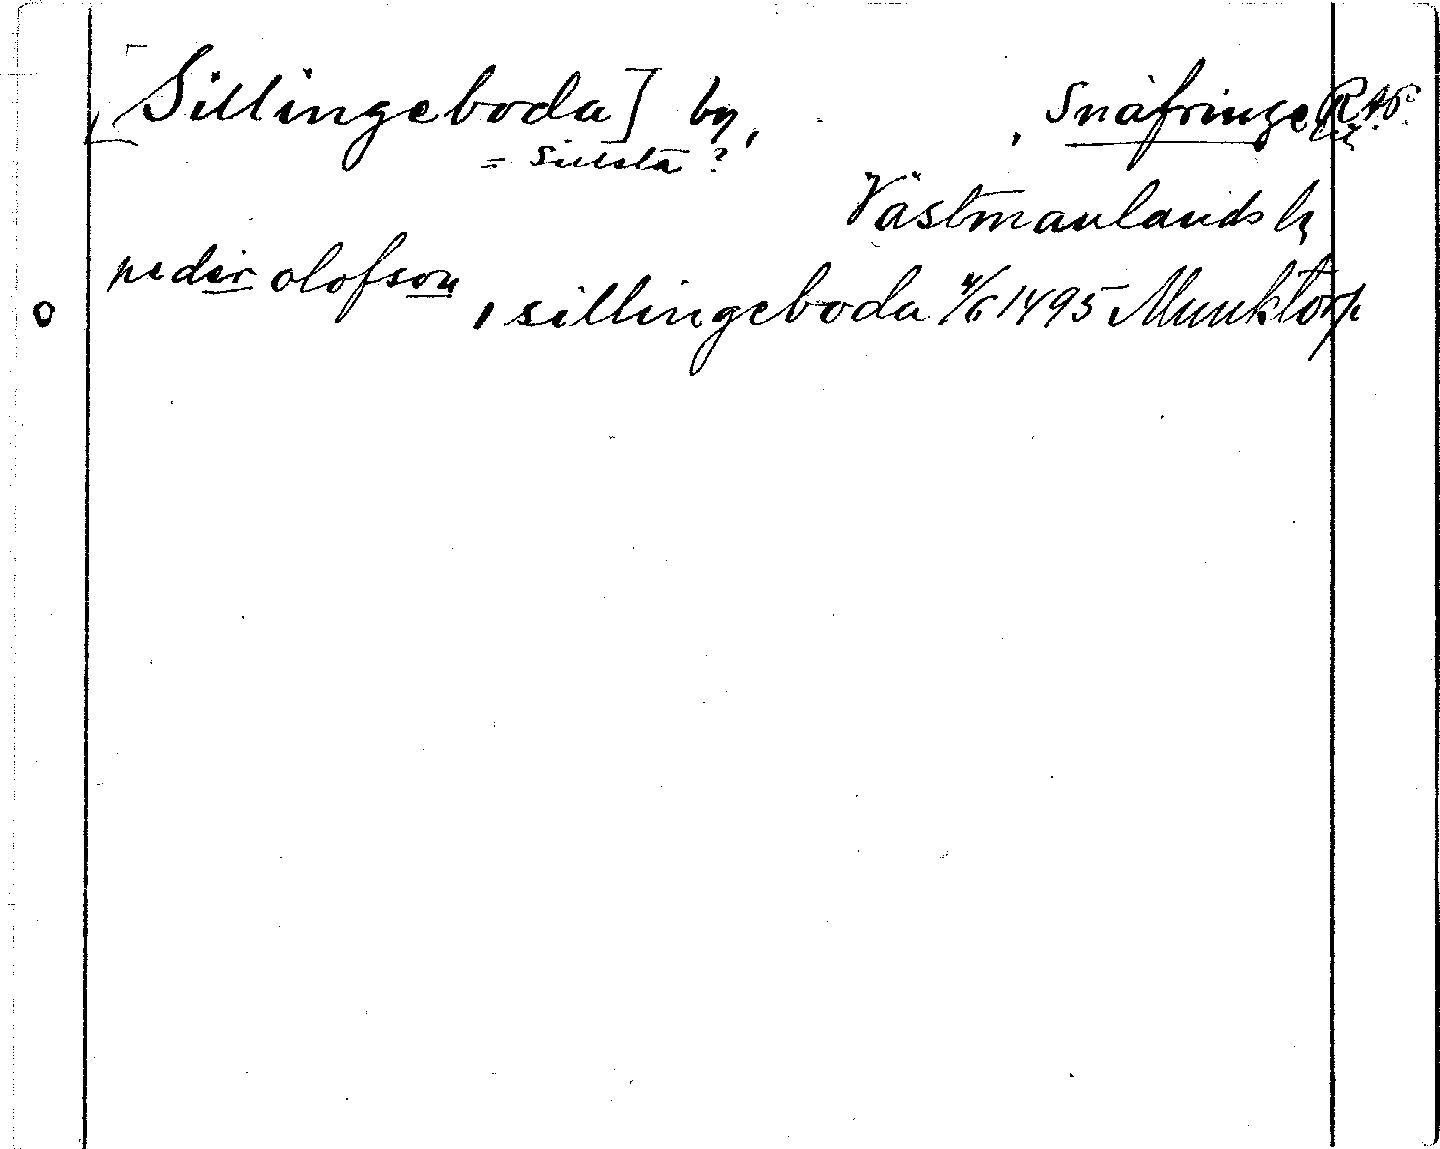 [Sillingeboda] by, , Snäfringe RAp.
= Sillsta ?
Västmanlands l.
peder olofson
, i sillingeboda 4/6 1495 Munktorp